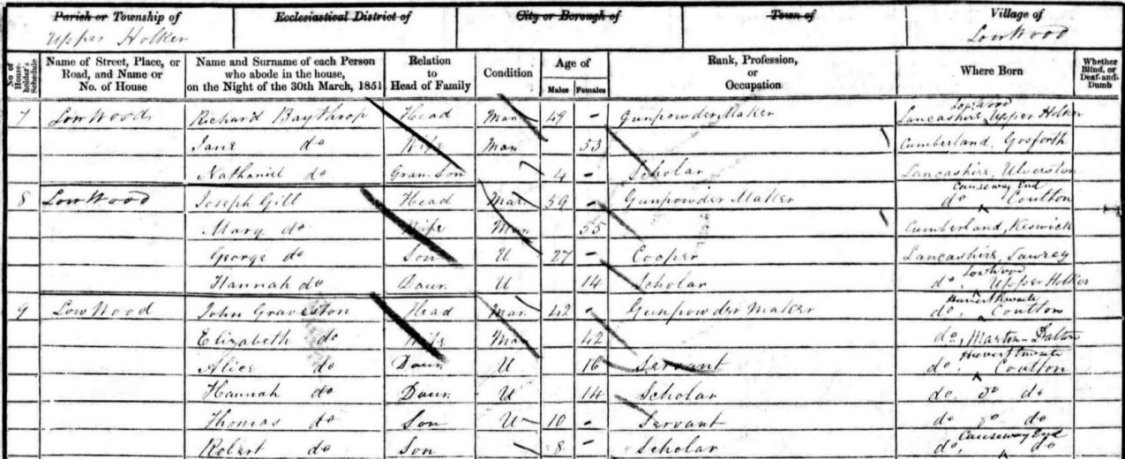 Parish or Township of Ecclesiastical District of City or Borough of Town of Village of
Upper Holker LowWood
No. of House-holder's Schedule Name of Street, Place, or Road, and Name or No. of House Name and Surname of each Person who abode in the house, on the Night of the 30th March, 1851 Relation to Head of Family Condition Age of Males Females Rank, Profession, or Occupation Where Born Whether Blind, or Deaf-and-Dumb
7 LowWood Richard Baythrop Head Mar 49 - Gunpowder Maker Lancashire, LowWood Upper Holker
Jane do Wife Mar 53 Cumberland, Gosforth
Nathaniel do Gran.Son 4 - Scholar Lancashire, Ulverston
8 LowWood Joseph Gill Head Mar. 59 - Gunpowder Maker do Causeway End Coulton
Mary do Wife Mar 55 Cumberland, Keswick
George do Son U 27 - Cooper Lancashire, Sawrey
Hannah do Daur. U 14 Scholar do, LowWood Upper Holker
9 LowWood John Graveston Head Mar. 42 - Gunpowder Maker do, Coulton
Elizabeth do Wife Mar 42 do, Marton-Dalton
Alice do Daur U 16 Servant do, Coulton
Hannah do Daur. U 14 Scholar do. do do
Thomas do Son U 10 - Servant do do do
Robert do Son 8 - Scholar do, Causeway End do